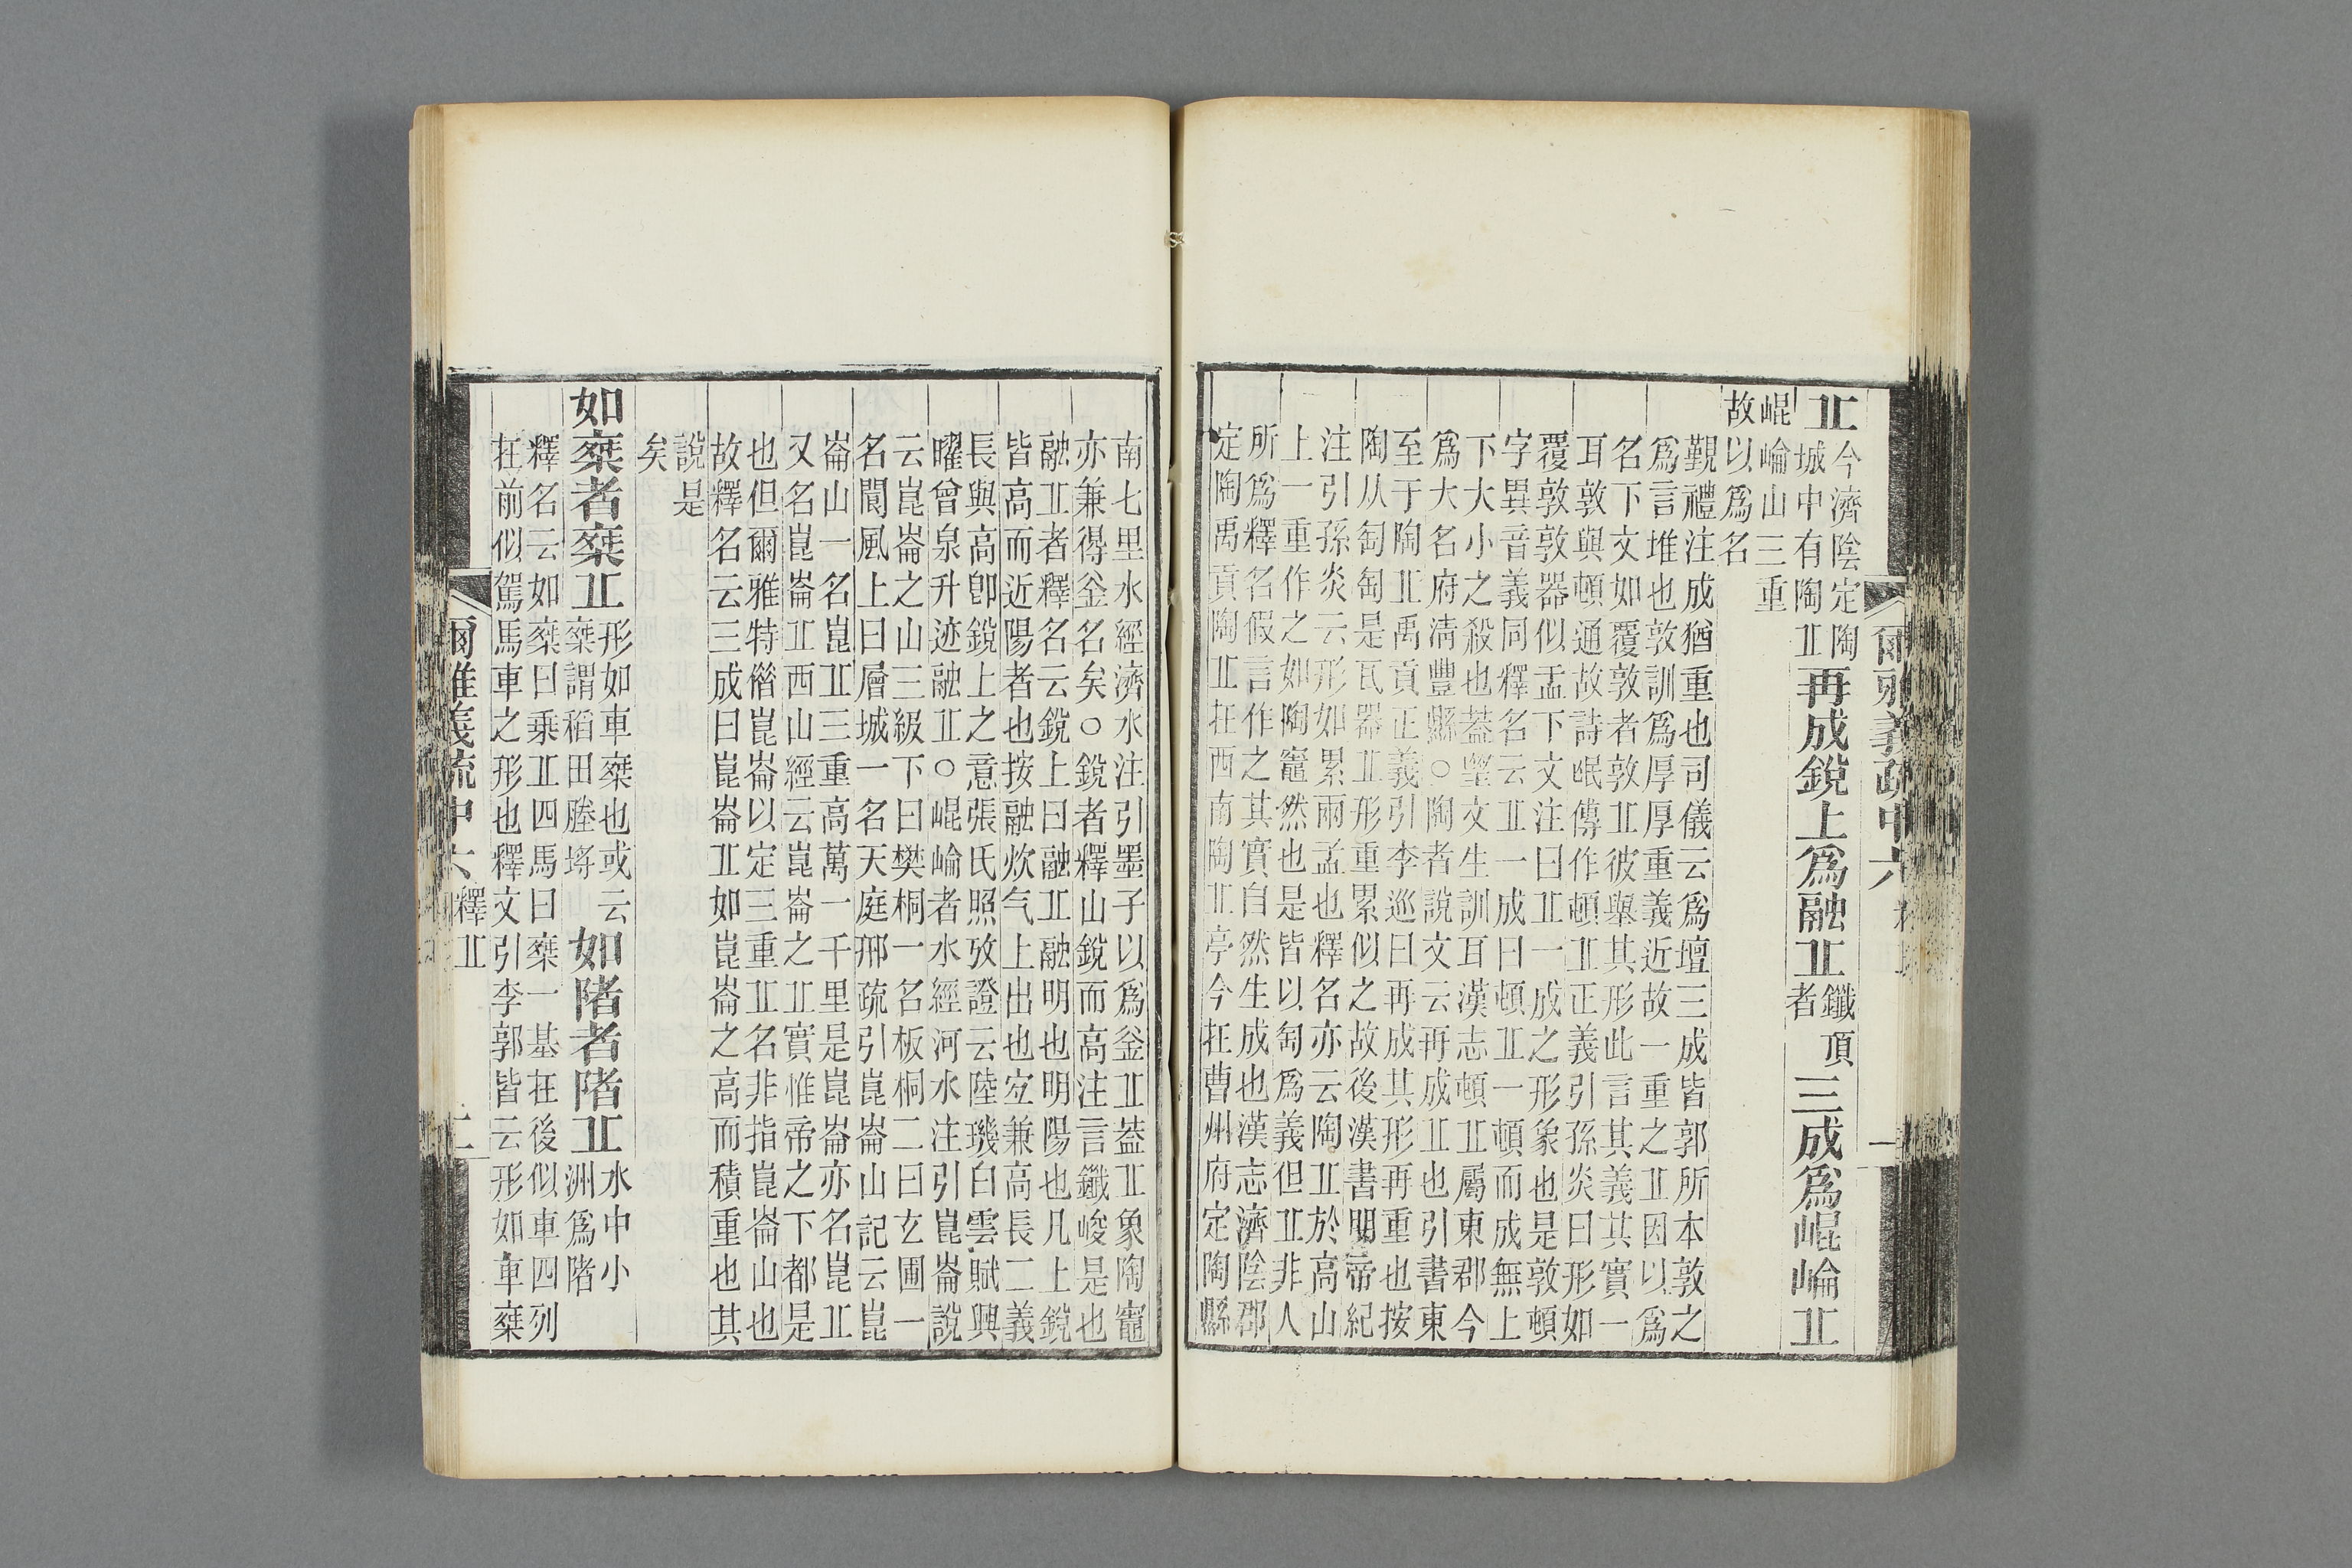 丠
今濟陰定陶
城中有陶丠
再成銳上爲融丠
鑯頂
者
三成爲崐崘丠
崐崘山三重
故以爲名
覲禮注成猶重也司儀云爲壇三成皆郭所本敦之
爲言堆也敦訓爲厚厚重義近故一重之丠因以爲
名下文如覆敦者敦丠彼舉其形此言其義其實一
耳敦與頓通故詩氓傳作頓丠正義引孫炎曰形如
覆敦敦器似盂下文注曰丠一成之形象也是敦頓
字異音義同釋名云丠一成曰頓丠一頓而成無上
下大小之殺也葢望文生訓耳漢志頓丠屬東郡今
爲大名府淸豐縣○陶者說文云再成丠也引書東
至于陶丠禹貢正義引李巡曰再成其形再重也按
陶从匋匋是瓦器丠形重累似之故後漢書明帝紀
注引孫炎云形如累兩盂也釋名亦云陶丠於高山
上一重作之如陶竈然也是皆以匋爲義但丠非人
所爲釋名假言作之其實自然生成也漢志濟陰郡
定陶禹貢陶丠在西南陶丠亭今在曹州府定陶縣
南七里水經濟水注引墨子以爲釜丠葢丠象陶竈
亦兼得釜名矣○銳者釋山銳而高注言鑯峻是也
融丠者釋名云銳上曰融丠融明也明陽也凡上銳
皆高而近陽者也按融炊气上出也㝎兼高長二義
長與高卽銳上之意張氏照攷證云陸璣白雲賦興
曜曾泉升迹融丠○崐崘者水經河水注引崑崙說
云崑崙之山三級下曰樊桐一名板桐二曰玄圃一
名閬風上曰層城一名天庭邢疏引崑崙山記云崑
崙山一名崑丠三重高萬一千里是崑崙亦名崑丠
又名崑崙丠西山經云崑崙之丠實惟帝之下都是
也但爾雅特偺崑崙以定三重丠名非指崑崙山也
故釋名云三成曰崑崙丠如崑崙之高而積重也其
說是
矣
如椉者椉丠
形如車椉也或云
椉謂稻田塍埓
如陼者陼丠
水中小
洲爲陼
釋名云如椉曰乗丠四馬曰椉一基在後似車四列
在前似駕馬車之形也釋文引李郭皆云形如車椉
爾雅義疏中六 釋丠 二